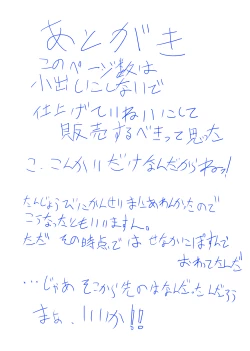 あとがき
このページ数は
小出しにしないで
仕上げていねいにして
販売するべきって思った
こ、こんかいだけなんだからねっ!
たんじょうびにかんせいまにあわんかったので
こうなったともいいますん。
ただ その時点では せなかにぽすんで
おわてたんだ
…じゃあ そこから先のはなんだったんだろ
まぁ、いいか!!